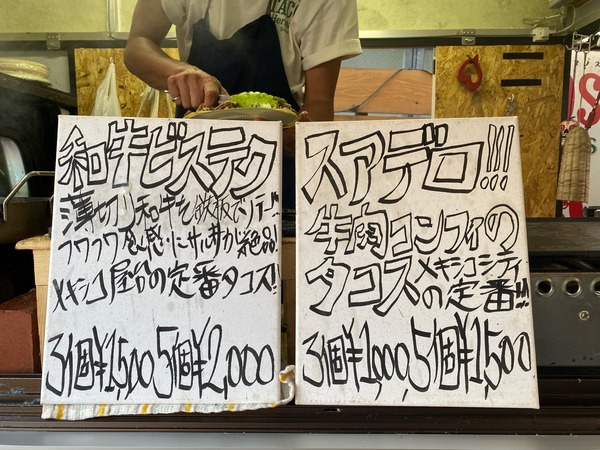 TACOS
和牛ビステク
薄切り和牛を鉄板でジュー!!
フワフワ食感にサルサが絶品!
メキシコ屋台の定番タコス!
3個¥1,500 5個¥2,000
スアデロ!!!
牛肉コンフィの
タコス メキシコシティ
の定番!!!
3個¥1,000, 5個¥1,500